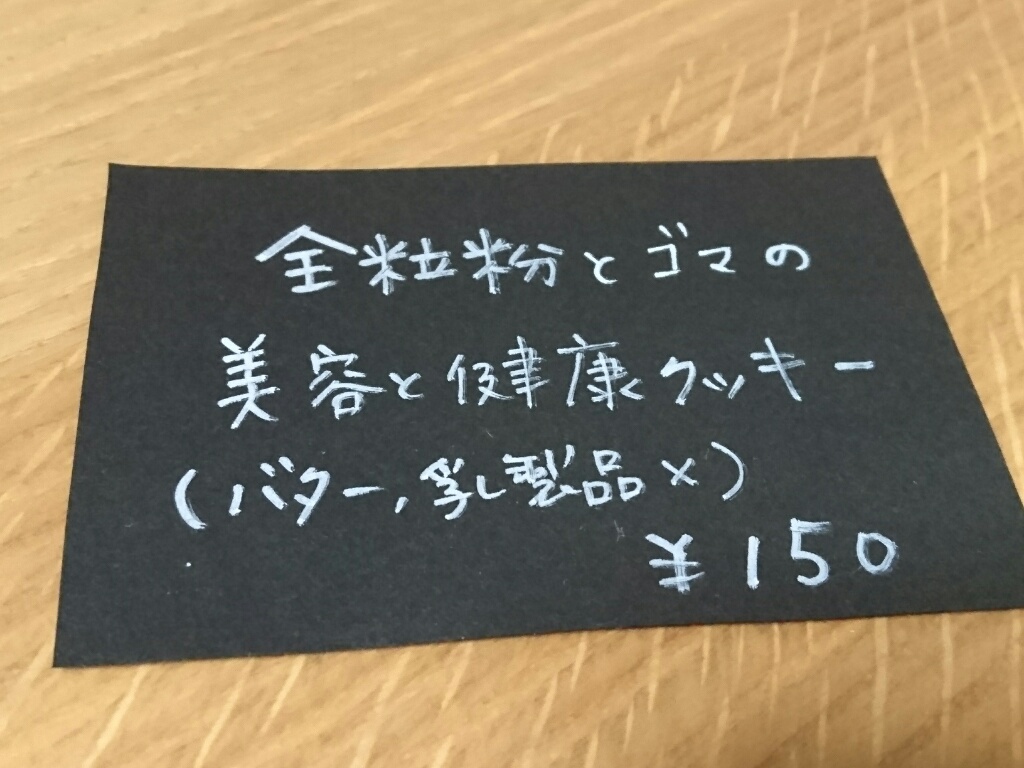 全粒粉とゴマの
美容と健康クッキー
(バター,乳製品×)
¥150